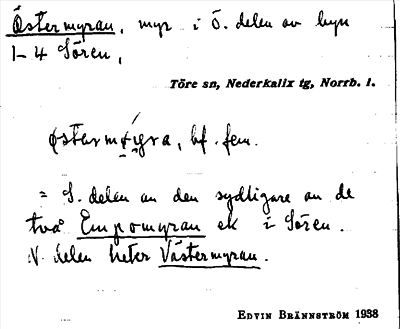 Östermyran, myr i ö. delen av byn
1–4 Sören,
Töre sn, Nederkalix tg, Norrb. l.
østermýra, bf. fem.
= S. delen av den sydligare av de
två Empomyran ek i Sören.
N. delen heter Västermyran.
EDVIN BRÄNNSTRÖM 1938